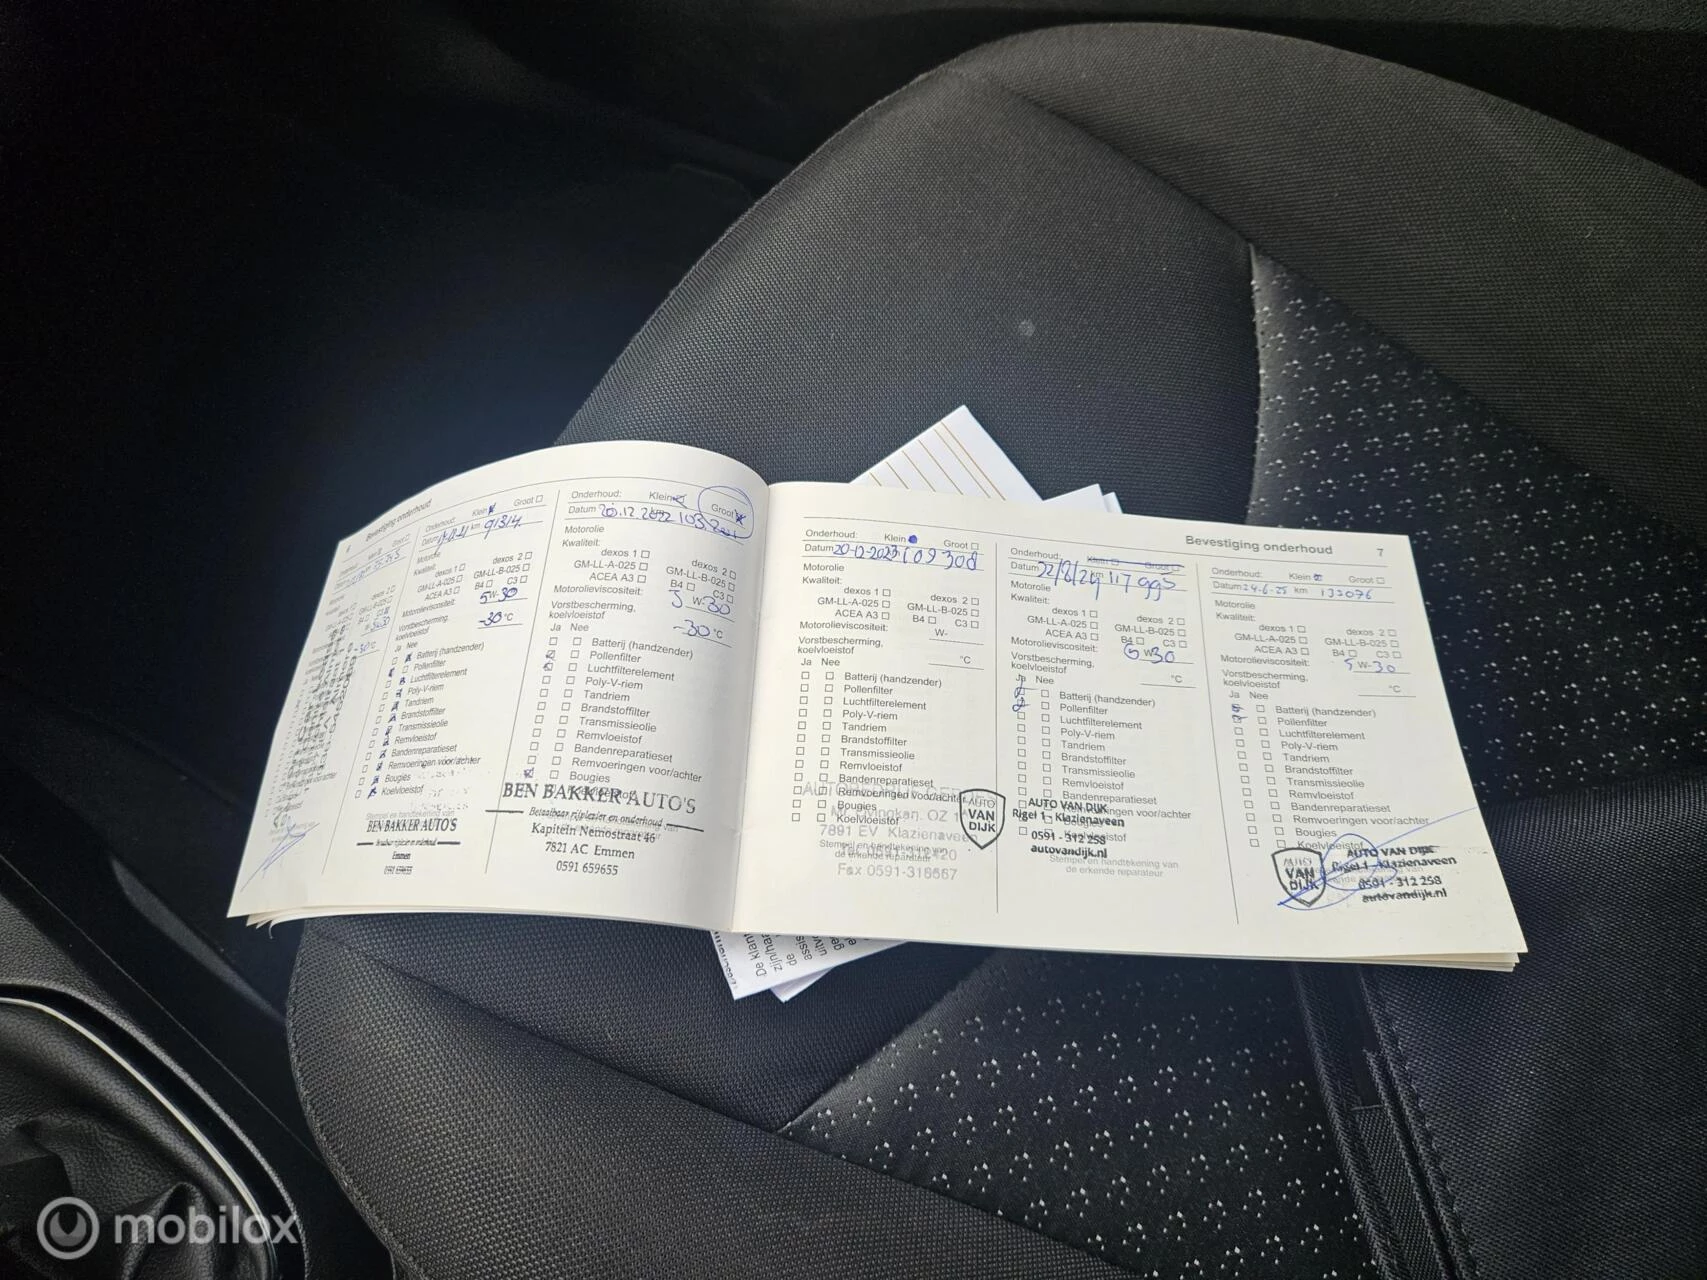 Bevestiging onderhoud
Onderhoud: Klein Groot
Datum km 91314
Motorolie
Kwaliteit:
dexos 1 dexos 2
GM-LL-A-025 GM-LL-B-025
ACEA A3 B4 C3
Motorolieviscositeit: 5W-30
Vorstbescherming,
koelvloeistof -30 °C
Ja Nee
Batterij (handzender)
Pollenfilter
Luchtfilterelement
Poly-V-riem
Tandriem
Brandstoffilter
Transmissieolie
Remvloeistof
Bandenreparatieset
Remvoeringen voor/achter
Bougies
Koelvloeistof
BEN BAKKER AUTO'S
Betaalbaar rijplezier en onderhoud
Emmen
0591 659655
Onderhoud: Klein Groot
Datum 20.12.2022
Motorolie
Kwaliteit:
dexos 1 dexos 2
GM-LL-A-025 GM-LL-B-025
ACEA A3 B4 C3
Motorolieviscositeit: 5 W-30
Vorstbescherming,
koelvloeistof -30 °C
Ja Nee
Batterij (handzender)
Pollenfilter
Luchtfilterelement
Poly-V-riem
Tandriem
Brandstoffilter
Transmissieolie
Remvloeistof
Bandenreparatieset
Remvoeringen voor/achter
Bougies
BEN BAKKER AUTO'S
Betaalbaar rijplezier en onderhoud
Kapitein Nemostraat 46
7821 AC Emmen
0591 659655
Bevestiging onderhoud 7
Onderhoud: Klein Groot
Datum 20-12-2023 109308
Motorolie
Kwaliteit:
dexos 1 dexos 2
GM-LL-A-025 GM-LL-B-025
ACEA A3 B4 C3
Motorolieviscositeit: W-
Vorstbescherming,
koelvloeistof °C
Ja Nee
Batterij (handzender)
Pollenfilter
Luchtfilterelement
Poly-V-riem
Tandriem
Brandstoffilter
Transmissieolie
Remvloeistof
Bandenreparatieset
Remvoeringen voor/achter
Bougies
Koelvloeistof
7891 EV Klazienaveen
Stempel en handtekening van
de erkende reparateur
Fax 0591-318667
Onderhoud: Klein Groot
Datum 22/8/24 km 117995
Motorolie
Kwaliteit:
dexos 1 dexos 2
GM-LL-A-025 GM-LL-B-025
ACEA A3 B4 C3
Motorolieviscositeit: 5 W 30
Vorstbescherming,
koelvloeistof °C
Ja Nee
Batterij (handzender)
Pollenfilter
Luchtfilterelement
Poly-V-riem
Tandriem
Brandstoffilter
Transmissieolie
Remvloeistof
Bandenreparatieset
Remvoeringen voor/achter
Bougies
Koelvloeistof
AUTO
VAN
DIJK
AUTO VAN DIJK
Rigel 1 - Klazienaveen
0591 - 312 258
autovandijk.nl
Stempel en handtekening van
de erkende reparateur
Onderhoud: Klein Groot
Datum 24-6-25 km 132076
Motorolie
Kwaliteit:
dexos 1 dexos 2
GM-LL-A-025 GM-LL-B-025
ACEA A3 B4 C3
Motorolieviscositeit: 5 W-30
Vorstbescherming,
koelvloeistof °C
Ja Nee
Batterij (handzender)
Pollenfilter
Luchtfilterelement
Poly-V-riem
Tandriem
Brandstoffilter
Transmissieolie
Remvloeistof
Bandenreparatieset
Remvoeringen voor/achter
Bougies
Koelvloeistof
AUTO
VAN
DIJK
AUTO VAN DIJK
Rigel 1 - Klazienaveen
0591 - 312 258
autovandijk.nl
mobilox